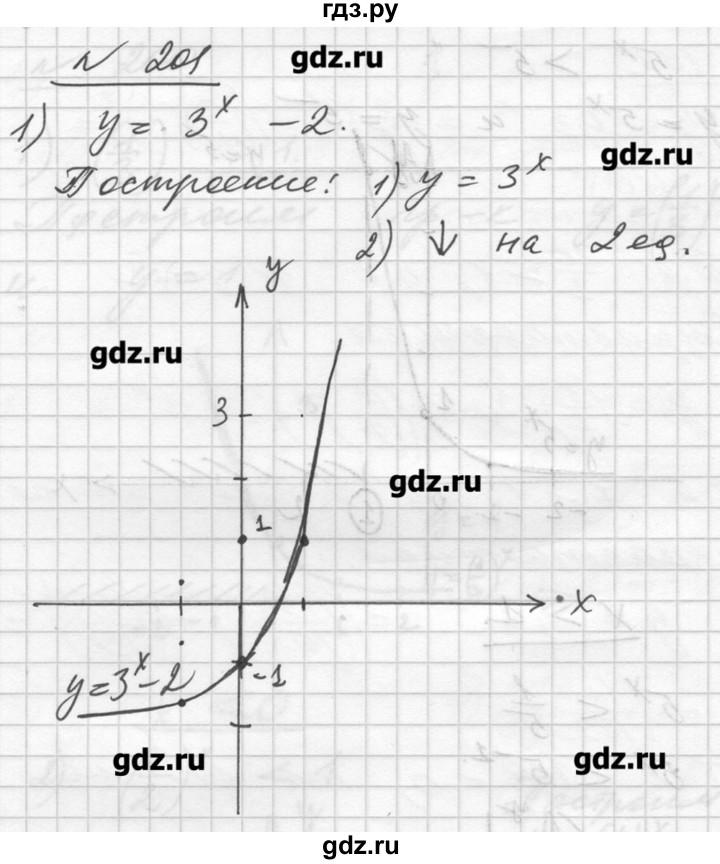 гдз.ру
№ 201
gdz.ru
1) y = 3^x - 2.
gdz.ru
Построение: 1) y = 3^x
2) ↓ на 2 ед.
y
gdz.ru
3
gdz.ru
1
x
-1
y=3^x-2
gdz.ru
gdz.ru
gdz.ru